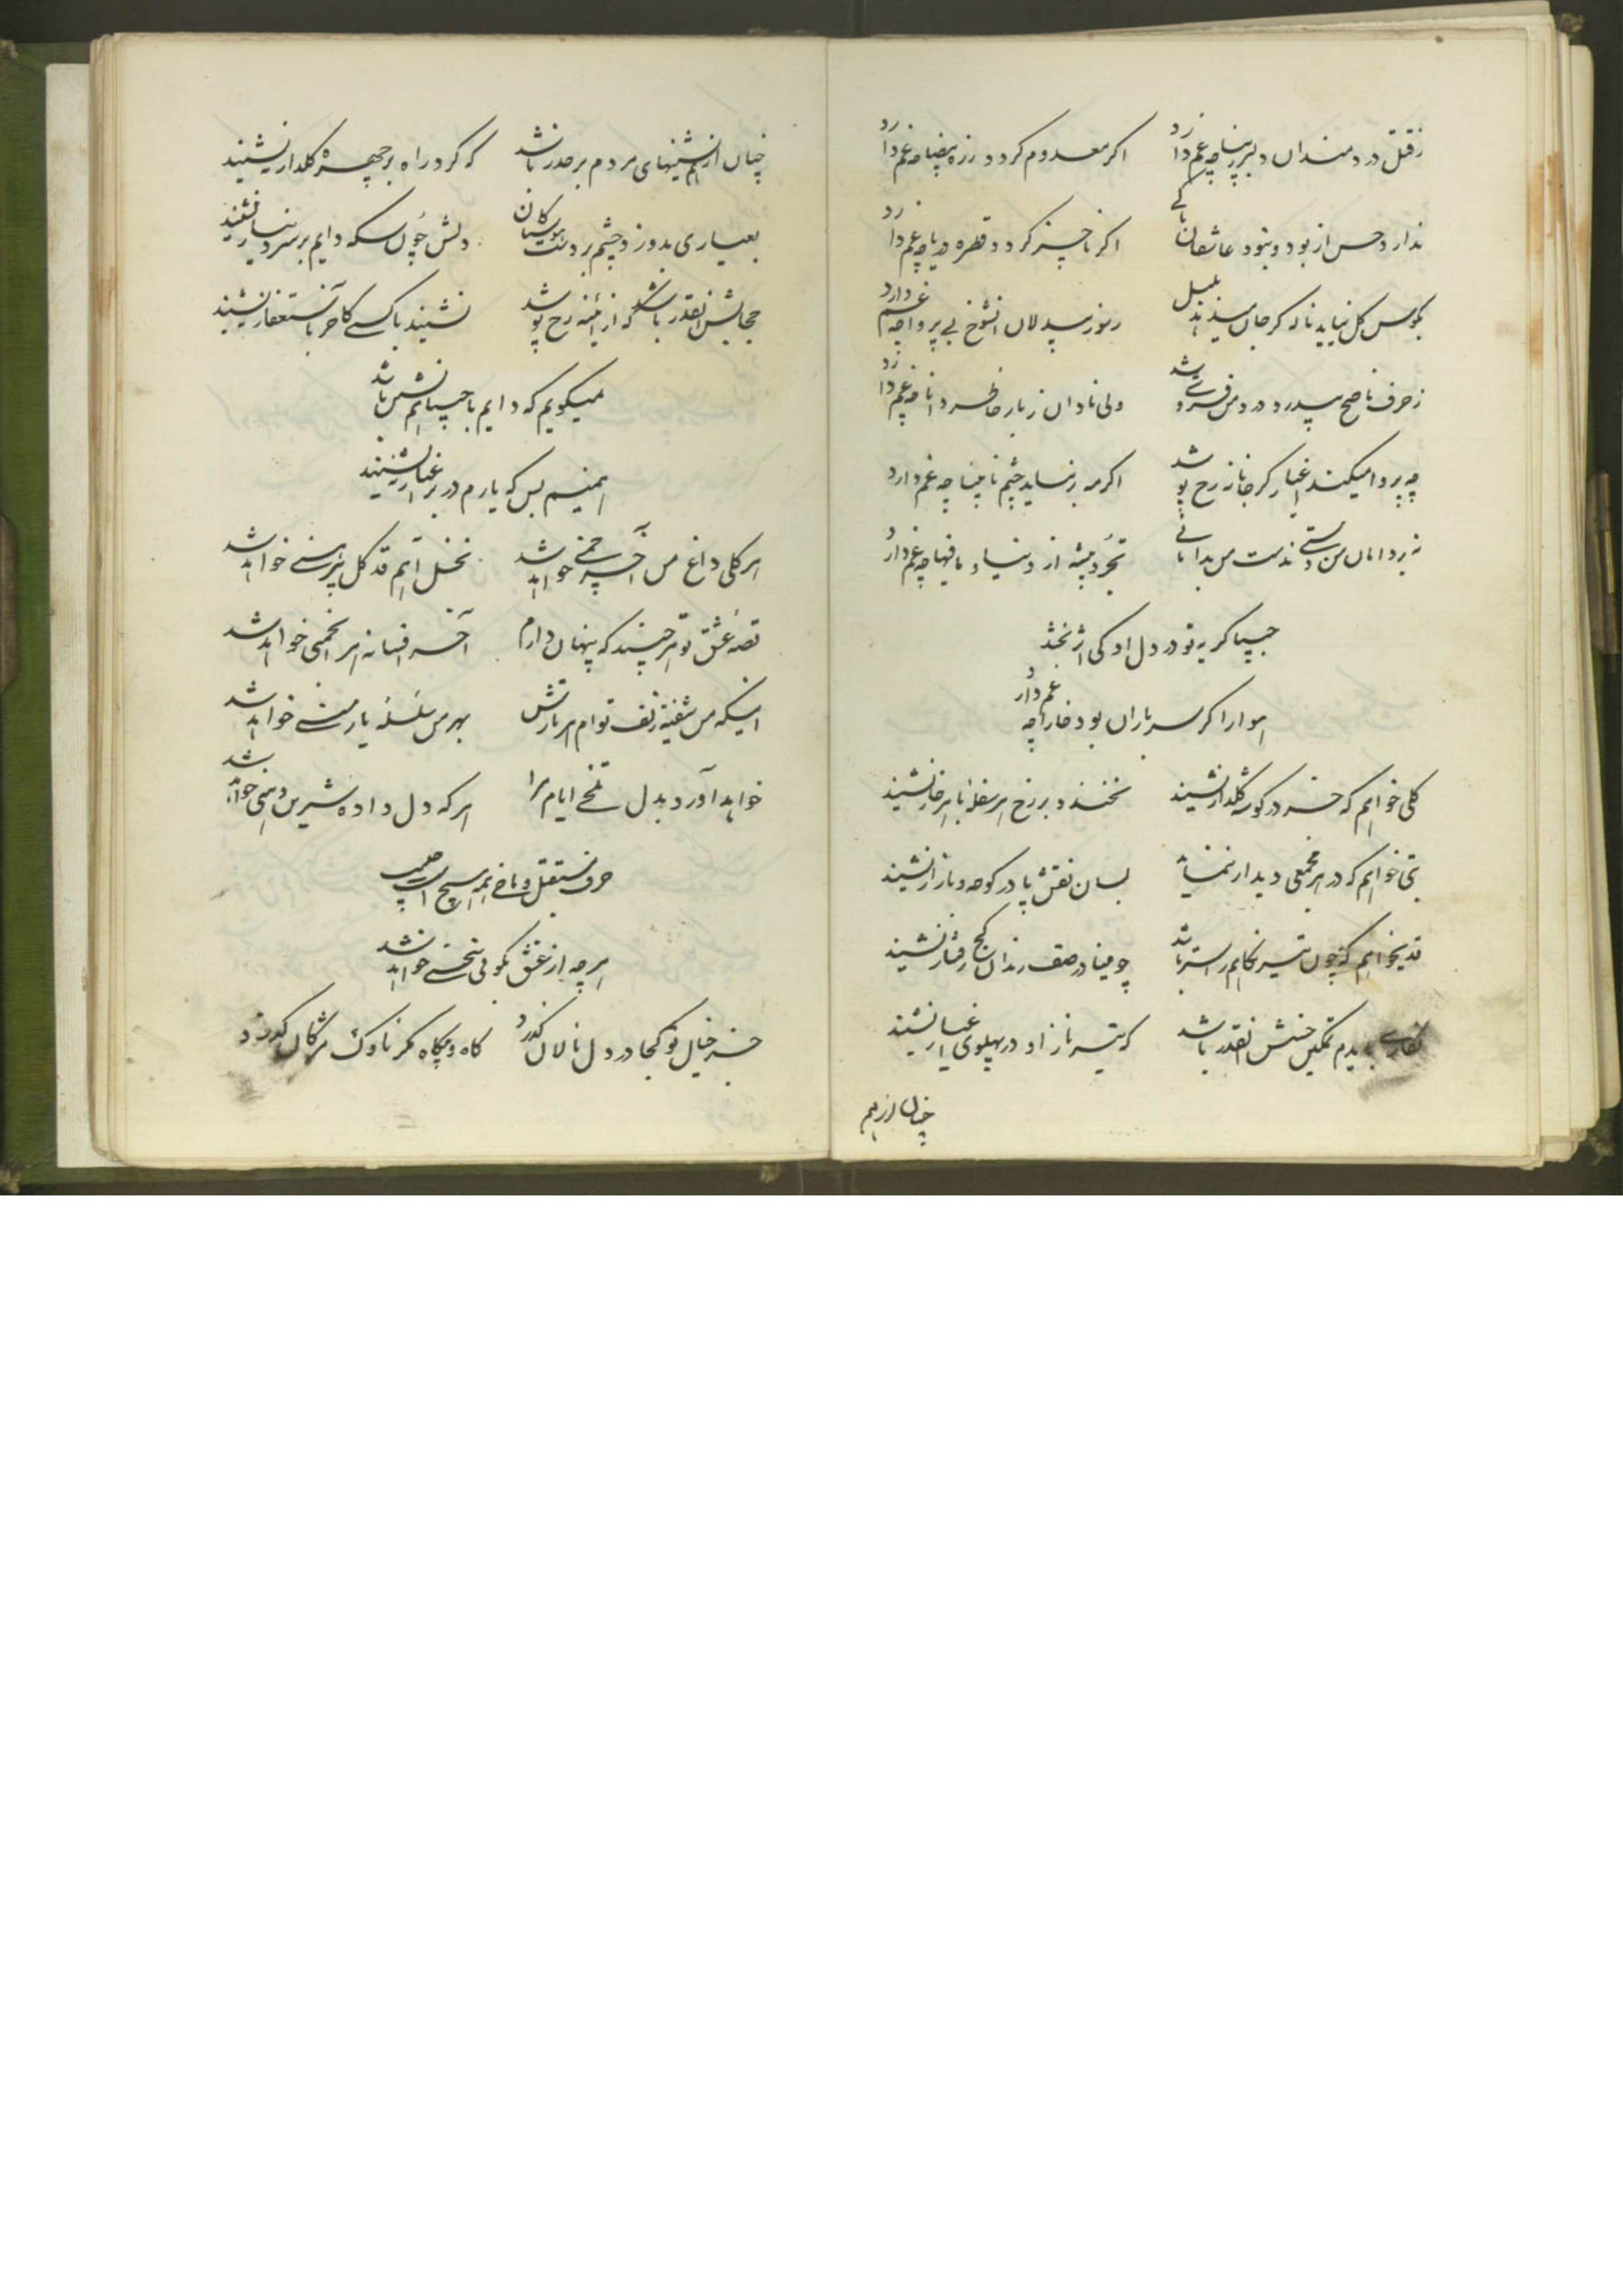 ز قتل دردمندان دلبر ما چه غم دارد اگر معدوم گردد ذره بیضا چه غم دارد
ندارد حسن از بود و نبود عاشقان باکی اگر ناچیز گردد قطره دریا چه غم دارد
بگوش گل نیاید ناله گر جان میدهد بلبل رموز بیدلان آنشوخ بی پروا چه غم دارد
ز حرف ناصح بیدرد درد من فزون شد ولی نادان ز بار خاطر دانا چه غم دارد
چه پروا میکند اغیار گر جانانه رخ پوشد اگر مه رخ نساید چشم نابینا چه غم دارد
نه بر دامان من دستی نه دست من بدامانی تجرد پیشه از دنیا و مافیها چه غم دارد
حسیبا گریه تو در دل او کی اثر بخشد
هوا را گر سر باران بود خارا چه غم دارد
گلی خواهم که جز در گوشه گلزار ننشیند نخندد بر رخ هر سفله با هر خار ننشیند
بتی خواهم که در هر مجمعی دیدار ننماید بسان نقش پا در کوچه و بازار ننشیند
قدی خواهم که چون تیر نگاهم راست رو باشد چو مینا در صف رندان کج رفتار ننشیند
نگاری بایدم تمکین حسنش آنقدر باشد که تیر ناز او در پهلوی اغیار ننشیند
چنان از هم
چنان از همنشینهای مردم بر حذر باشد که گرد راه بر چهره گلدار ننشیند
بعیاری بدوزد چشم بر دست هوسناکان دلش چون سکه دایم بر سر دینار ننشیند
حجابش آنقدر باشد که از آئینه رخ پوشد نشیند با کسی کاخر باستغفار ننشیند
نمیگویم که دایم با حسیبا همنشین باشد
همینم بس که یارم در بر اغیار ننشیند
هر گلی داغ من آخر چمنی خواهد شد نخل آهم قد گل پیرهنی خواهد شد
قصه عشق تو هر چند که پنهان دارم آخر افسانه هر انجمنی خواهد شد
اینکه من شیفته زلف توام هر تارش بهر من سلسله پای منی خواهد شد
خواهد آورد بدل تلخی ایام مرا هر که دل داده شیرین دهنی خواهد شد
حرف مستقبل و ماضی همه هیچ است حسیب
هر چه از عشق بگوئی سخنی خواهد شد
جز خیال تو کجا در دل نالان گذرد گاه و بیگاه مگر ناوک مژگان گذرد